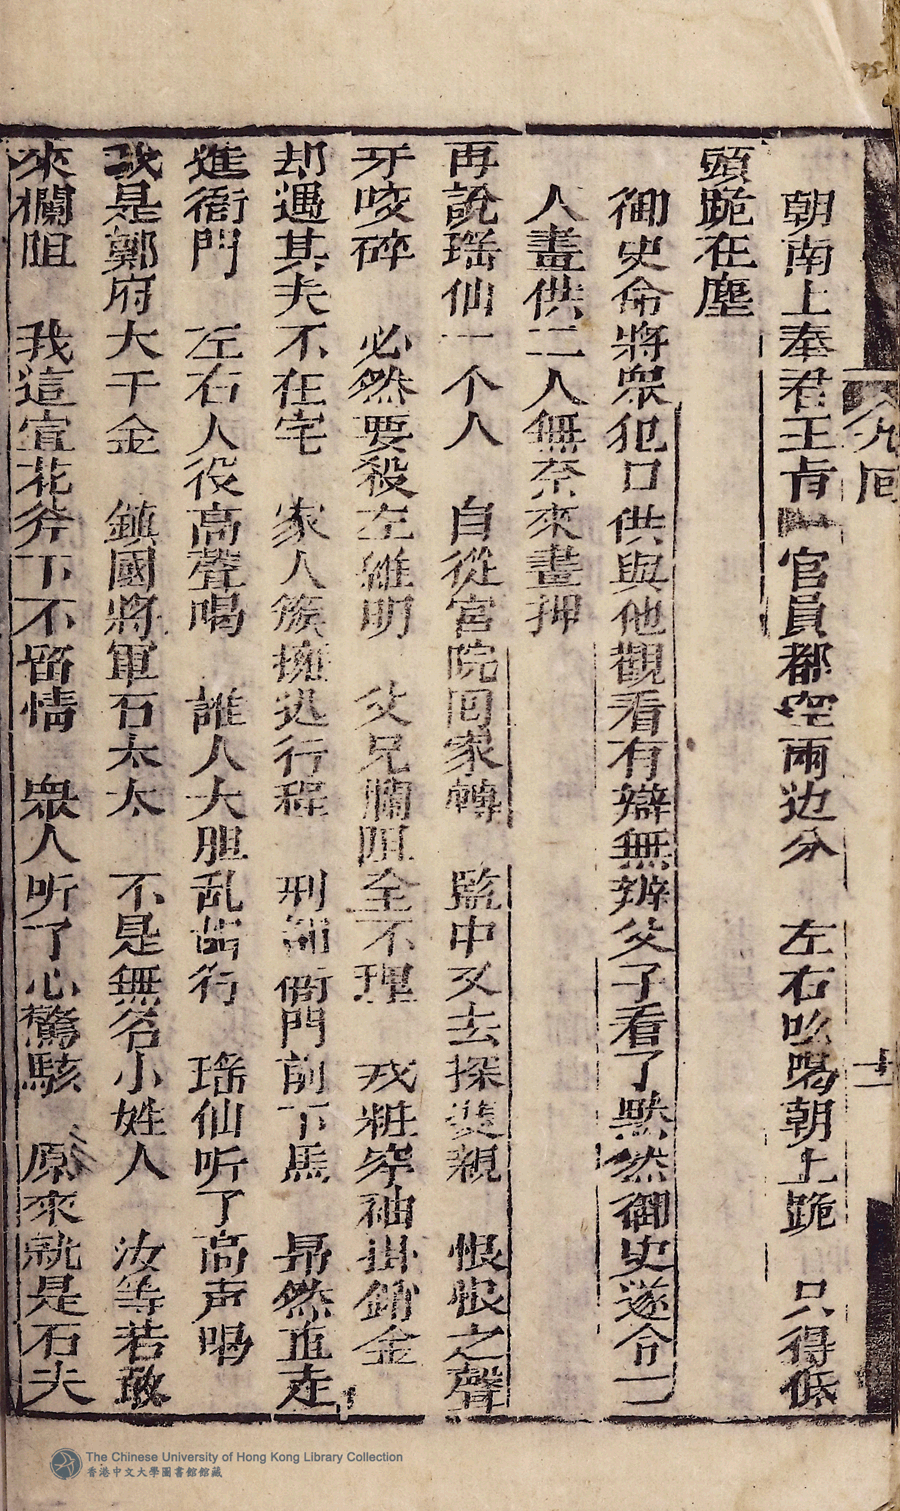 九回
十一
朝南上奉君王旨 官員都空兩边分 左右吆喝朝上跪 只得低
頭跪在塵
御史命將眾犯口供與他觀看有辯無辨父子看了黙然御史遂令二
人畫供二人無奈來畫押
再說瑶仙一个人 自從宮院回家轉 監中又去探親 恨恨之聲
牙咬碎 必然要殺左維明 父兄攔阻全不理 戎粧窄袖掛銷金
却遇其夫不在宅 家人簇擁迯行程 刑部衙門前下馬 昻然直走
進衙門 左右人役高聲喝 誰人大胆乱行 瑶仙听了高声喝
我是鄭府大千金 鎮國將軍石太太 不是無名小姓人 汝等若敢
來欄阻 我這宣花斧下不留情 眾人听了心驚駭 原來就是石夫
The Chinese University of Hong Kong Library Collection
香港中文大學圖書館館藏